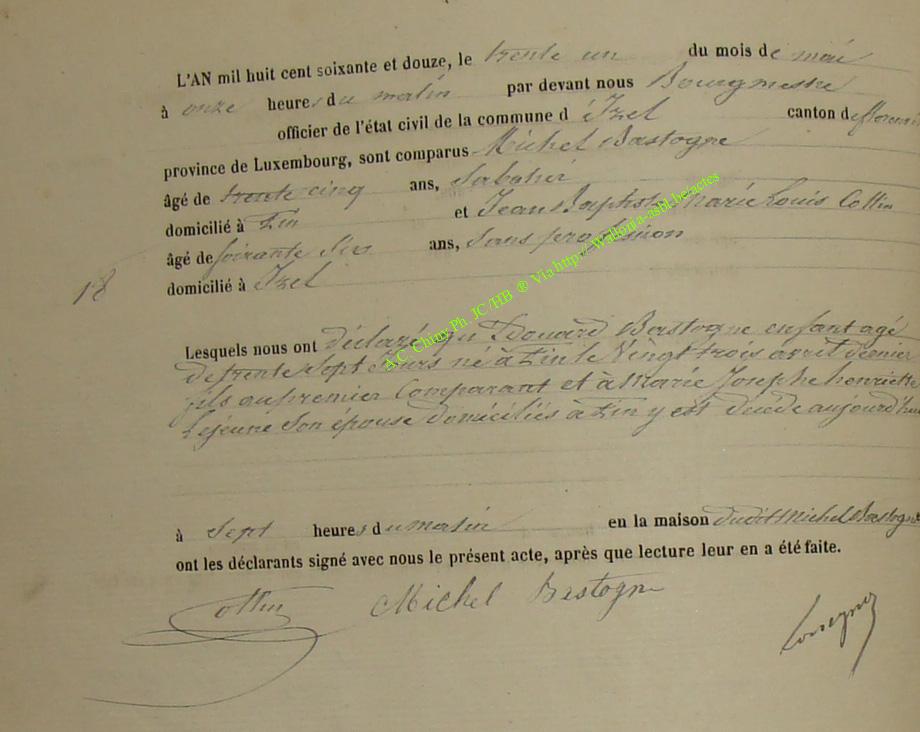 L'AN mil huit cent soixante et douze, le trente un du mois de mai
à onze heures du matin par devant nous Bourgmestre
officier de l'état civil de la commune d'Izel canton de florenvi
province de Luxembourg, sont comparus Michel Bastogne
âgé de trente cinq ans, Sabotier
domicilié à Pin et Jean Baptiste Marie Louis Collin
âgé de soixante Six ans, Sans profession
18
domicilié à Izel
Lesquels nous ont déclaré qu'Edouard Bastogne enfant agé
de trente sept Jours né à Pin le Vingt trois avril dernier
fils au premier Comparant et à Marie Josephe henriette
Lejeune Son épouse domiciliés à Pin y est décédé aujourd'hui
à Sept heures du matin en la maison dudit Michel Bastogne
ont les déclarants signé avec nous le présent acte, après que lecture leur en a été faite.
Collin Michel Bastogne
A.C Chiny Ph. JC /HB ® Via http://Wallonia-asbl.be/actes